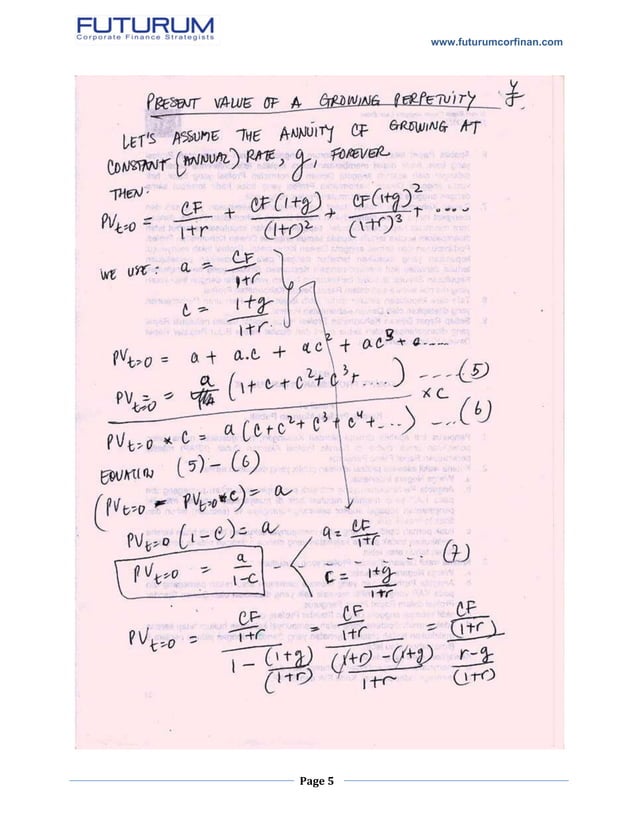 FUTURUM
Corporate Finance Strategists
www.futurumcorfinan.com
PRESENT VALUE OF A GROWING PERPETUITY
LET'S ASSUME THE ANNUITY CF GROWING AT
CONSTANT (ANNUAL) RATE, g, FOREVER
THEN:
PVt=0 = CF/1+r + CF(1+g)/(1+r)2 + CF(1+g)2/(1+r)3 + ....
WE USE: a = CF/1+r
c = 1+g/1+r
PVt=0 = a + a.c + ac2 + ac3 + ......
PVt=0 = a (1+c+c2+c3+.....) ....(5)
×c
PVt=0 * c = a (c+c2+c3+c4+...) ...(6)
EQUATION (5) - (6)
(PVt=0 - PVt=0*c) = a
PVt=0 (1-c) = a
PVt=0 = a/1-c
a = CF/1+r
c = 1+g/1+r
... (7)
PVt=0 = CF/1+r / 1 - (1+g)/(1+r) = CF/1+r / (1+r)-(1+g)/1+r = CF/(1+r) / r-g/(1+r)
Page 5